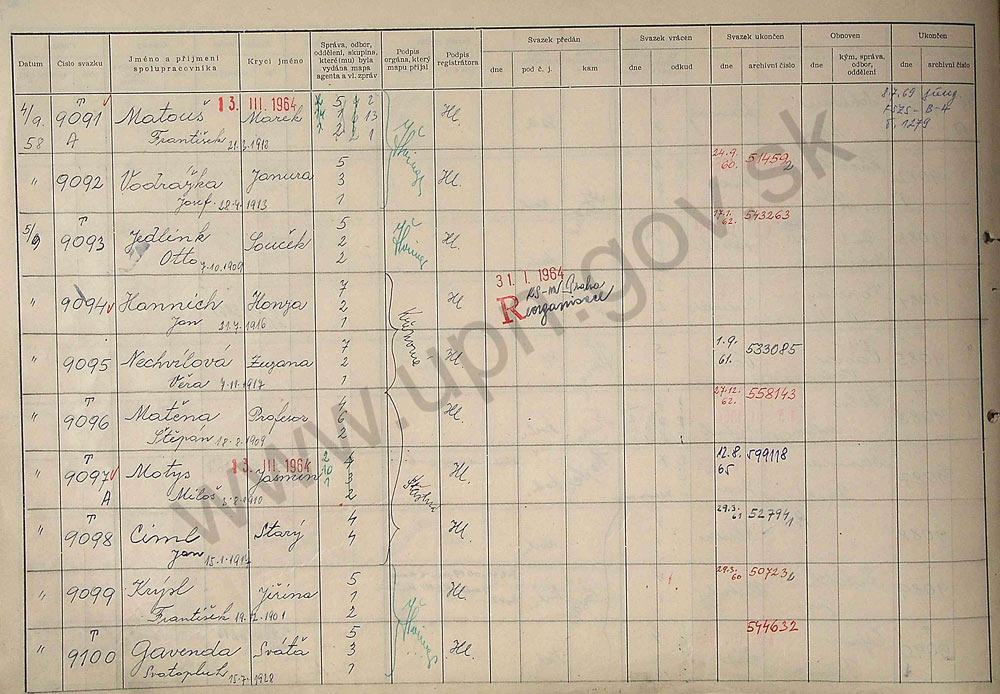 Datum
Číslo svazku
Jméno a příjmení
spolupracovníka
Krycí jméno
Správa, odbor,
oddělení, skupina,
které(mu) byla
vydána mapa
agenta a vl. zpráv
Podpis
orgána, který
mapu přijal
Podpis
registrátora
Svazek předán
dne
pod č. j.
kam
Svazek vrácen
dne
odkud
Svazek ukončen
dne
archivní číslo
Obnoven
dne
kým, správa,
odbor,
oddělení
Ukončen
dne
archivní číslo
4/9. 58
9091 A
Matouš
František
13. III. 1964
Marek
Hl.
8.7.69
FSZS-B-4
č. 1279
" 9092
Vodrážka
Josef
Janura
5
3
1
Hl.
24.9.
60.
51459
5/9
9093
Jedlink
Otto 7.10.1909
Souček
5
2
2
Hl.
17.1.
62.
543263
" 9094
Hannich
Jan
Honza
7
2
1
Hl.
31. I. 1964
Reorganisace
" 9095
Nechvílová
Věra
Zuzana
7
2
1
Hl.
1.9.
61.
533085
" 9096
Matěna
Štěpán 18.8.1909
Profesor
4
6
2
Hl.
27.12.
62.
558143
" 9097 A
Motys
Miloš
13. III. 1964
Jasmín
Hl.
12.8.
65
599118
" 9098
Ciml
Jan
Starý
4
4
Hl.
29.3.
52794
" 9099
Krýsl
František 19.12.1901
Jiřina
5
1
2
Hl.
29.3.
60
50723
" 9100
Gavenda
Svatopluk 15.7.1928
Sváťa
5
3
1
Hl.
544632
www.upn.gov.sk